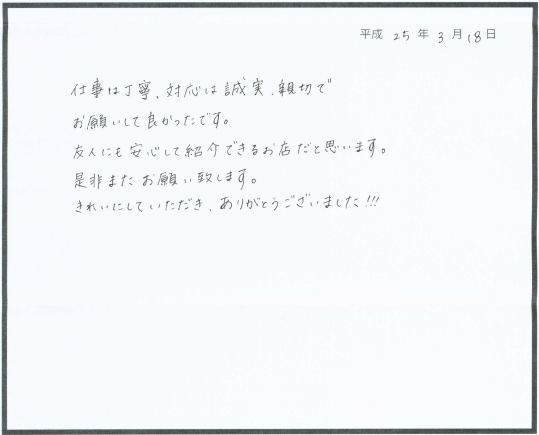 平成 25 年 3 月 18 日
仕事は丁寧、対応は誠実、親切で
お願いして良かったです。
友人にも安心して紹介できるお店だと思います。
是非またお願い致します。
きれいにしていただき、ありがとうございました!!!